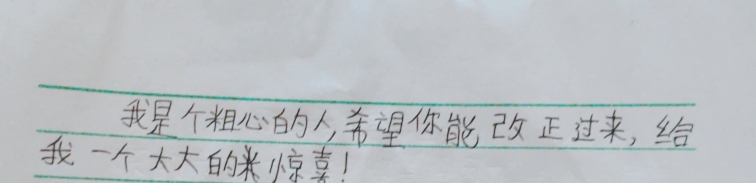 我是个粗心的人,希望你能改正过来,给
我一个大大的惊喜!